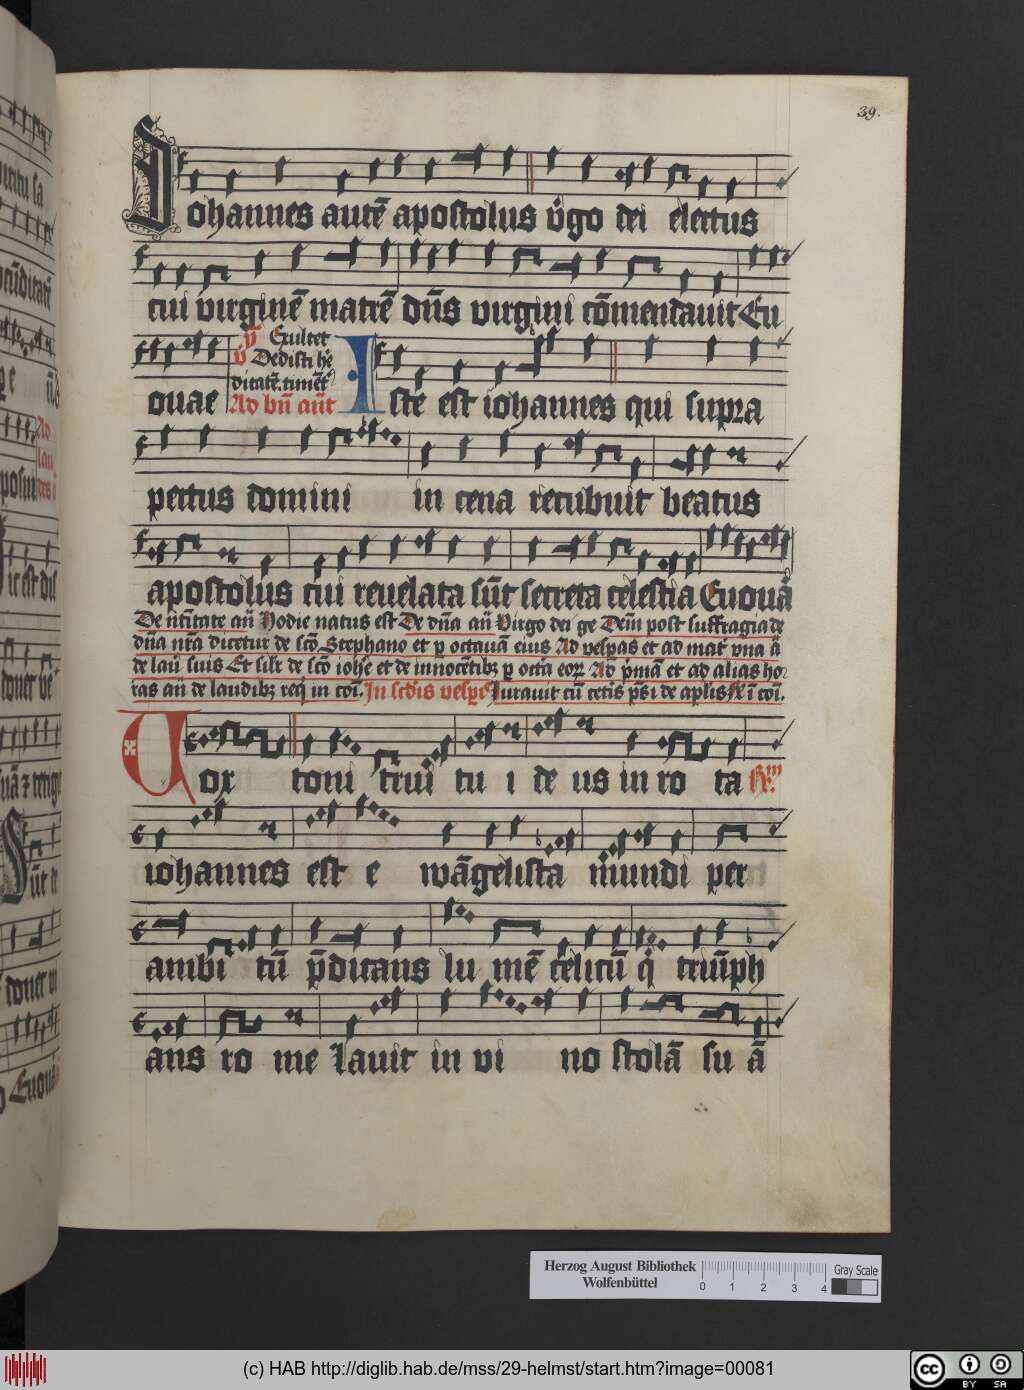 39.
Johannes autē apostolus v̄go dei electus
cui virginē matrē dn̄s virgini cōmendauit Eu
ouae
v̄ Exultet
v̄ Dedisti he
ditatē. timēt
Ad bn̄ an̄t
Iste est iohannes qui supra
pectus domini in cena recubuit beatus
apostolus cui reuelata sūt secreta celestia Euouā
De natītate an̄ Hodie natus est De dn̄a an̄ Virgo dei ge Deīn post suffragia de
dn̄a nr̄a dicetur de scō Stephano et p octauā eius Ad vespas et ad mat' vna ā
de lau suis Et silr de scō iohe et de innocētibz p octa eorz Ad p̄mā et ad alias ho
ras an̄ de laudibz req' in coī. In scdis vesp' Iurauit cū cetis ps̄ de aplis in coī.
Uox toni trui tu i de us in ro ta
iohannes est e wāgelista mundi per
ambi tū p̄dicans lu mē celicū q' triūph
ans ro me Lauit in vi no stolā su ā
Herzog August Bibliothek
Wolfenbüttel
0 1 2 3 4
Gray Scale
(c) HAB http://diglib.hab.de/mss/29-helmst/start.htm?image=00081
cc BY SA